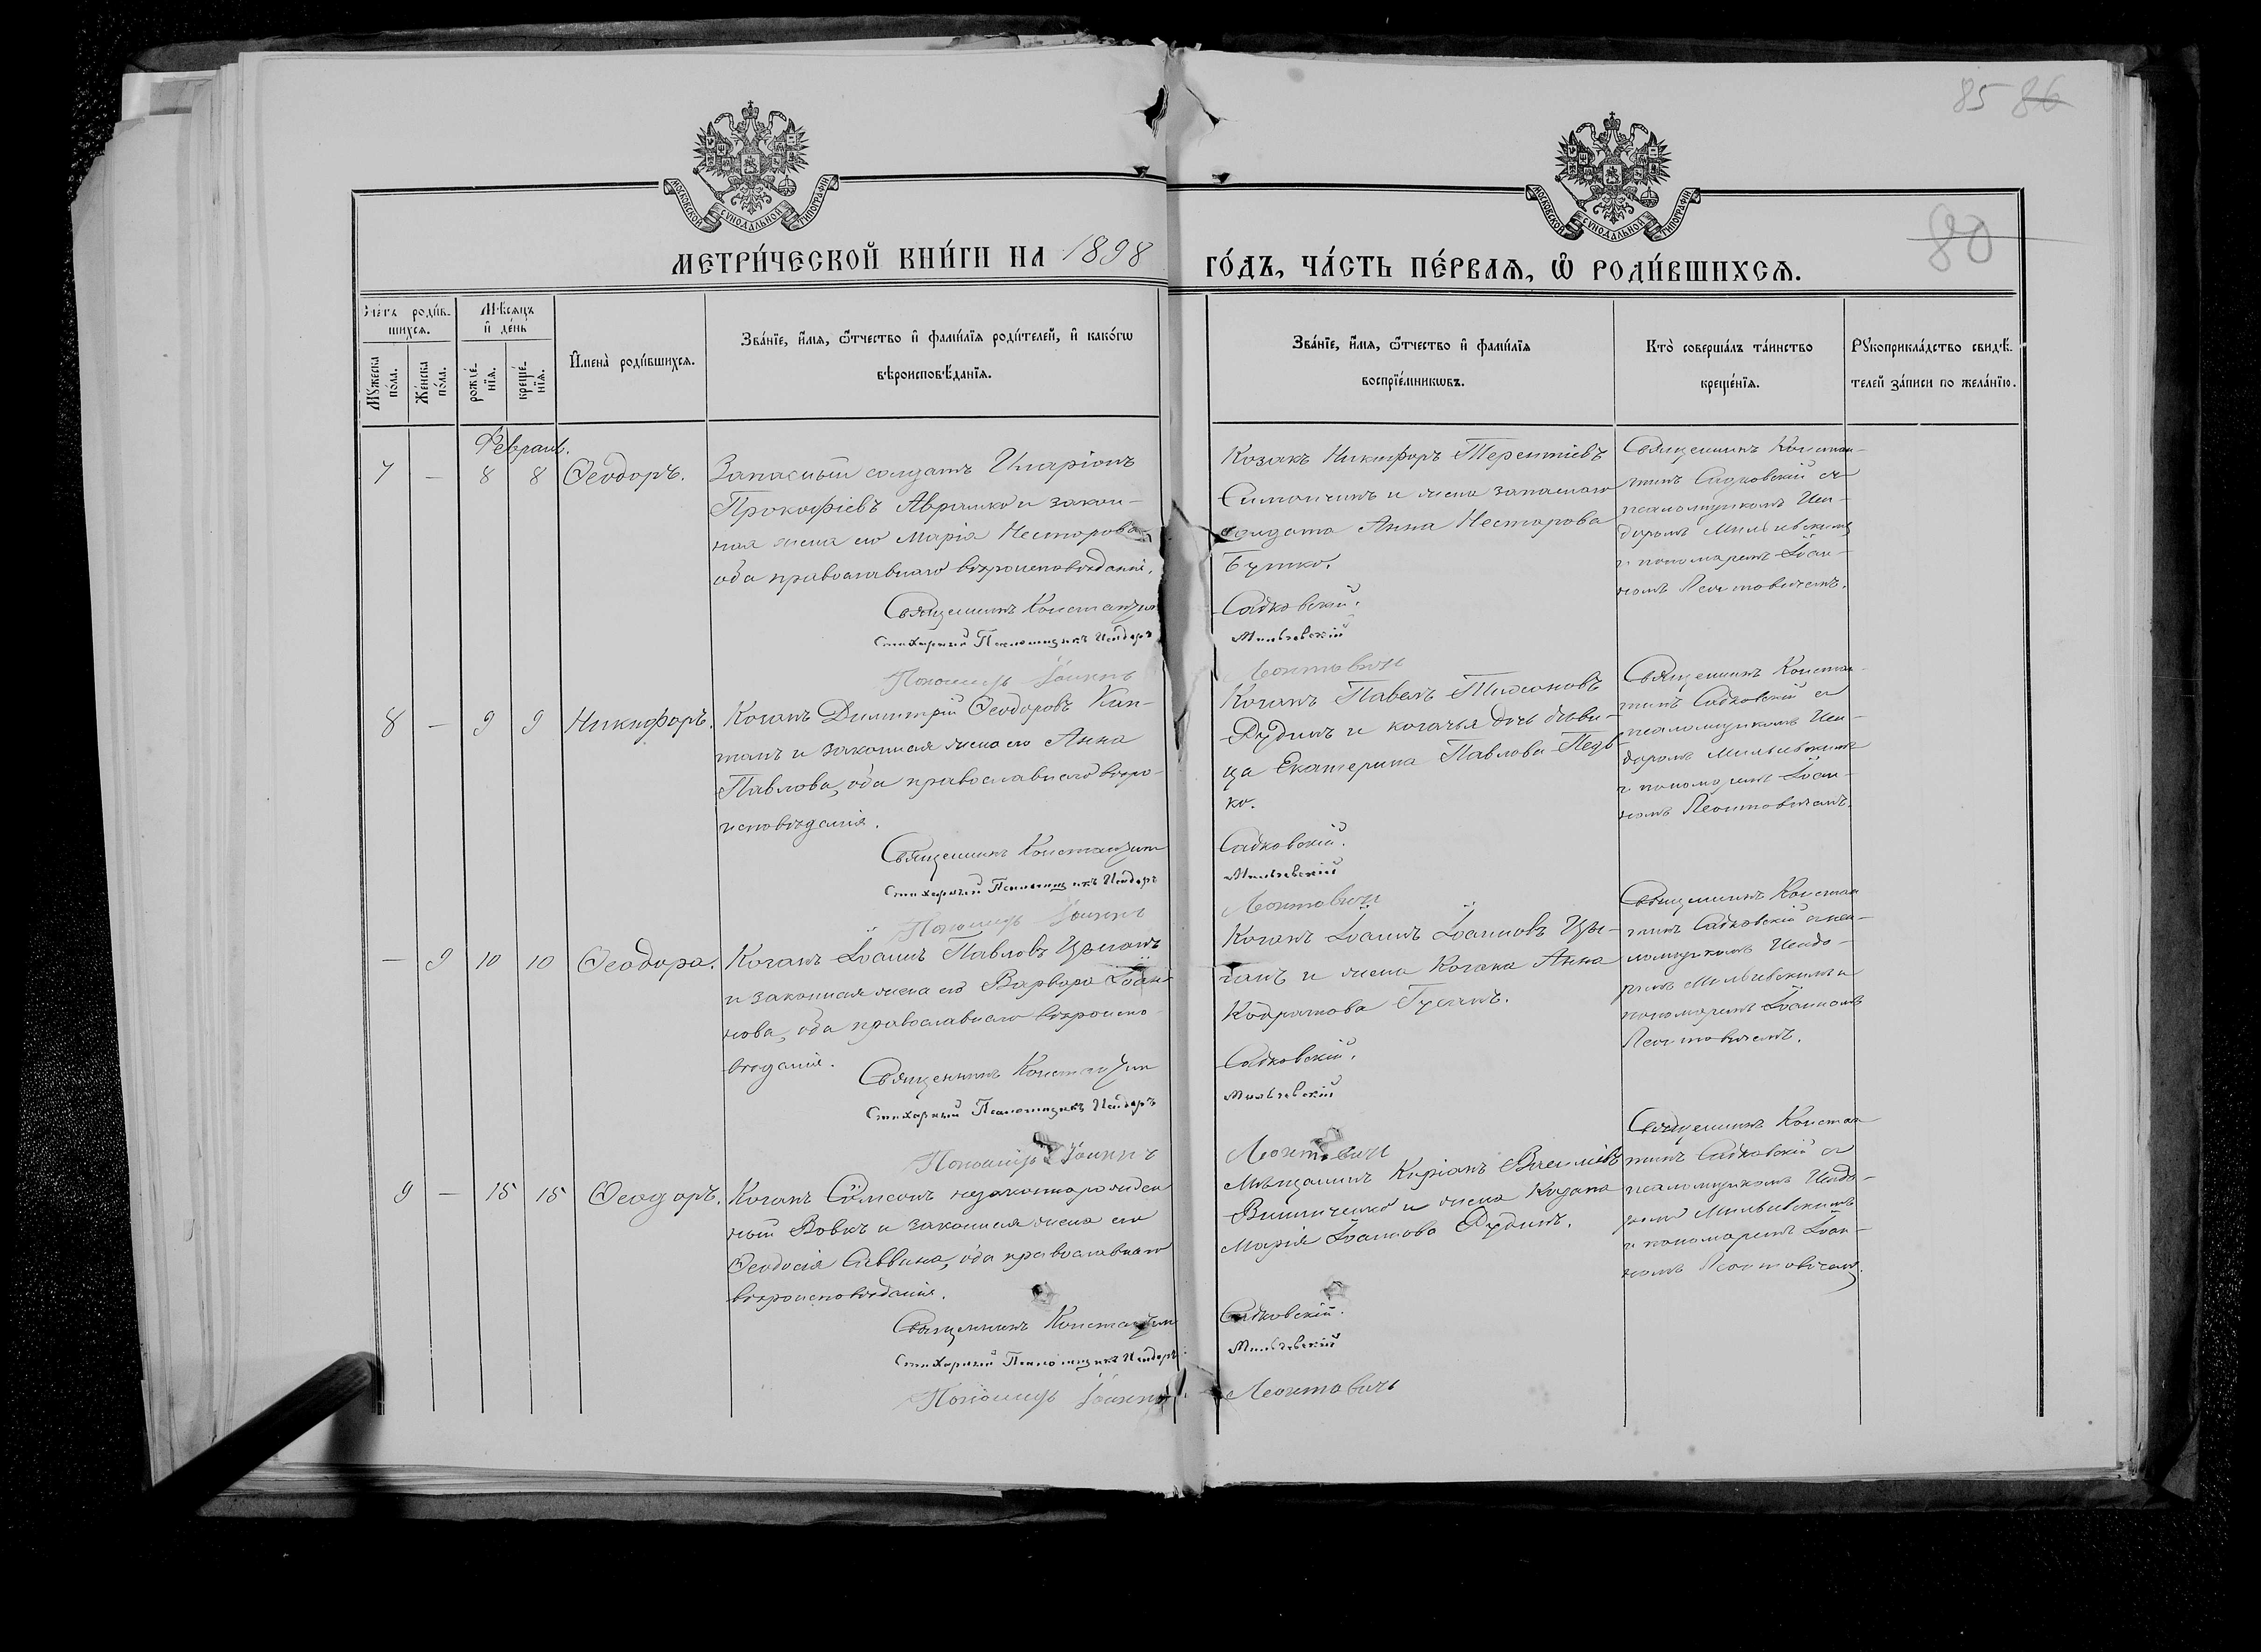 85 86
80
МОСКОВСКОЙ СѴНОДАЛЬНОЙ ТИПОГРАФІИ
МОСКОВСКОЙ СѴНОДАЛЬНОЙ ТИПОГРАФІИ
МЕТРИ́ЧЕСКОЙ КНИ́ГИ НА 1898
ГО́ДЪ, ЧА́СТЬ ПЕ́РВАѦ, Ѽ РОДИ́ВШИХСѦ.
Счетъ роди́в-
шихсѧ.
Мꙋ́жеска
по́ла.
Же́нска
по́ла.
Мѣ́сѧцъ
и҆ де́нь
рожде́-
нїѧ.
креще́-
нїѧ.
И҆мена̀ роди́вшихсѧ.
Зва́нїе, и҆́мѧ, ѻ҆́тчество и҆ фами́лїѧ роди́телей, и҆ како́гѡ
вѣроисповѣ́данїѧ.
Зва́нїе, и҆́мѧ, ѻ҆́тчество и҆ фами́лїѧ
воспрїе́мникѡвъ.
Кто̀ соверша́лъ та́инство
креще́нїѧ.
Рꙋкоприкла́дство свидѣ́-
телей за́писи по жела́нїю.
Февраль.
7 — 8 8 Ѳеодоръ.
Запасный солдатъ Иларіонъ
Прокофіевъ Авраменко и закон-
ная жена его Марія Несторова
оба православнаго вѣроисповѣданія.
Священникъ Константинъ
Стихарный Псаломщикъ Исидоръ
Пономарь Іоаннъ
Козакъ Никифоръ Терентіевъ
и жена запаснаго
солдата Анна Несторова
Бутко.
Садковскій.
Мильчевскій
Леонтовичъ
Священникъ Констан-
тинъ Садковскій съ
псаломщикомъ Иси-
доромъ Мильчевскимъ
и пономаремъ Іоан-
номъ Леонтовичемъ.
8 — 9 9 Никифоръ.
Козакъ Димитрій Ѳеодоровъ Кап-
танъ и законная жена его Анна
Павлова, оба православнаго вѣро-
исповѣданія.
Священникъ Константинъ
Стихарный Псаломщикъ Исидоръ
Пономарь Іоаннъ
Козакъ Павелъ Тихоновъ
Рудикъ и козачья дочь дѣви-
ца Екатерина Павлова Педь-
ко.
Садковскій.
Мильчевскій
Леонтовичъ
Священникъ Констан-
тинъ Садковскій съ
псаломщикомъ Иси-
доромъ Мильчевскимъ
и пономаремъ Іоан-
номъ Леонтовичемъ.
— 9 10 10 Ѳеодора.
Козакъ Іоаннъ Павловъ Цыганъ
и законная жена его Варвара Іоан-
нова, оба православнаго вѣроиспо-
вѣданія.
Священникъ Константинъ
Стихарный Псаломщикъ Исидоръ
Пономарь Іоаннъ
Козакъ Іоаннъ Іоанновъ Цы-
ганъ и жена Козака Анна
Кодратова Гусакъ.
Садковскій.
Мильчевскій
Леонтовичъ
Священникъ Констан
тинъ Садковскій съ пса-
ломщикомъ Исидо-
ромъ Мильчевскимъ и
пономаремъ Іоанномъ
Леонтовичемъ.
9 — 15 15 Ѳеодоръ.
Козакъ Сѵмеонъ незаконнорожден
ный Вовкъ и законная жена его
Ѳеодосія Саввина, оба православнаго
вѣроисповѣданія.
Священникъ Константинъ
Стихарный Псаломщикъ Исидоръ
Пономарь Іоаннъ
Мѣщанинъ Киріакъ Васильевъ
Винниченко и жена Козака
Марія Іоаннова Рудикъ.
Садковскій.
Мильчевскій
Леонтовичъ
Священникъ Констан
тинъ Садковскій съ
псаломщикомъ Исидо-
ромъ Мильчевскимъ
и пономаремъ Іоан-
номъ Леонтовичемъ.